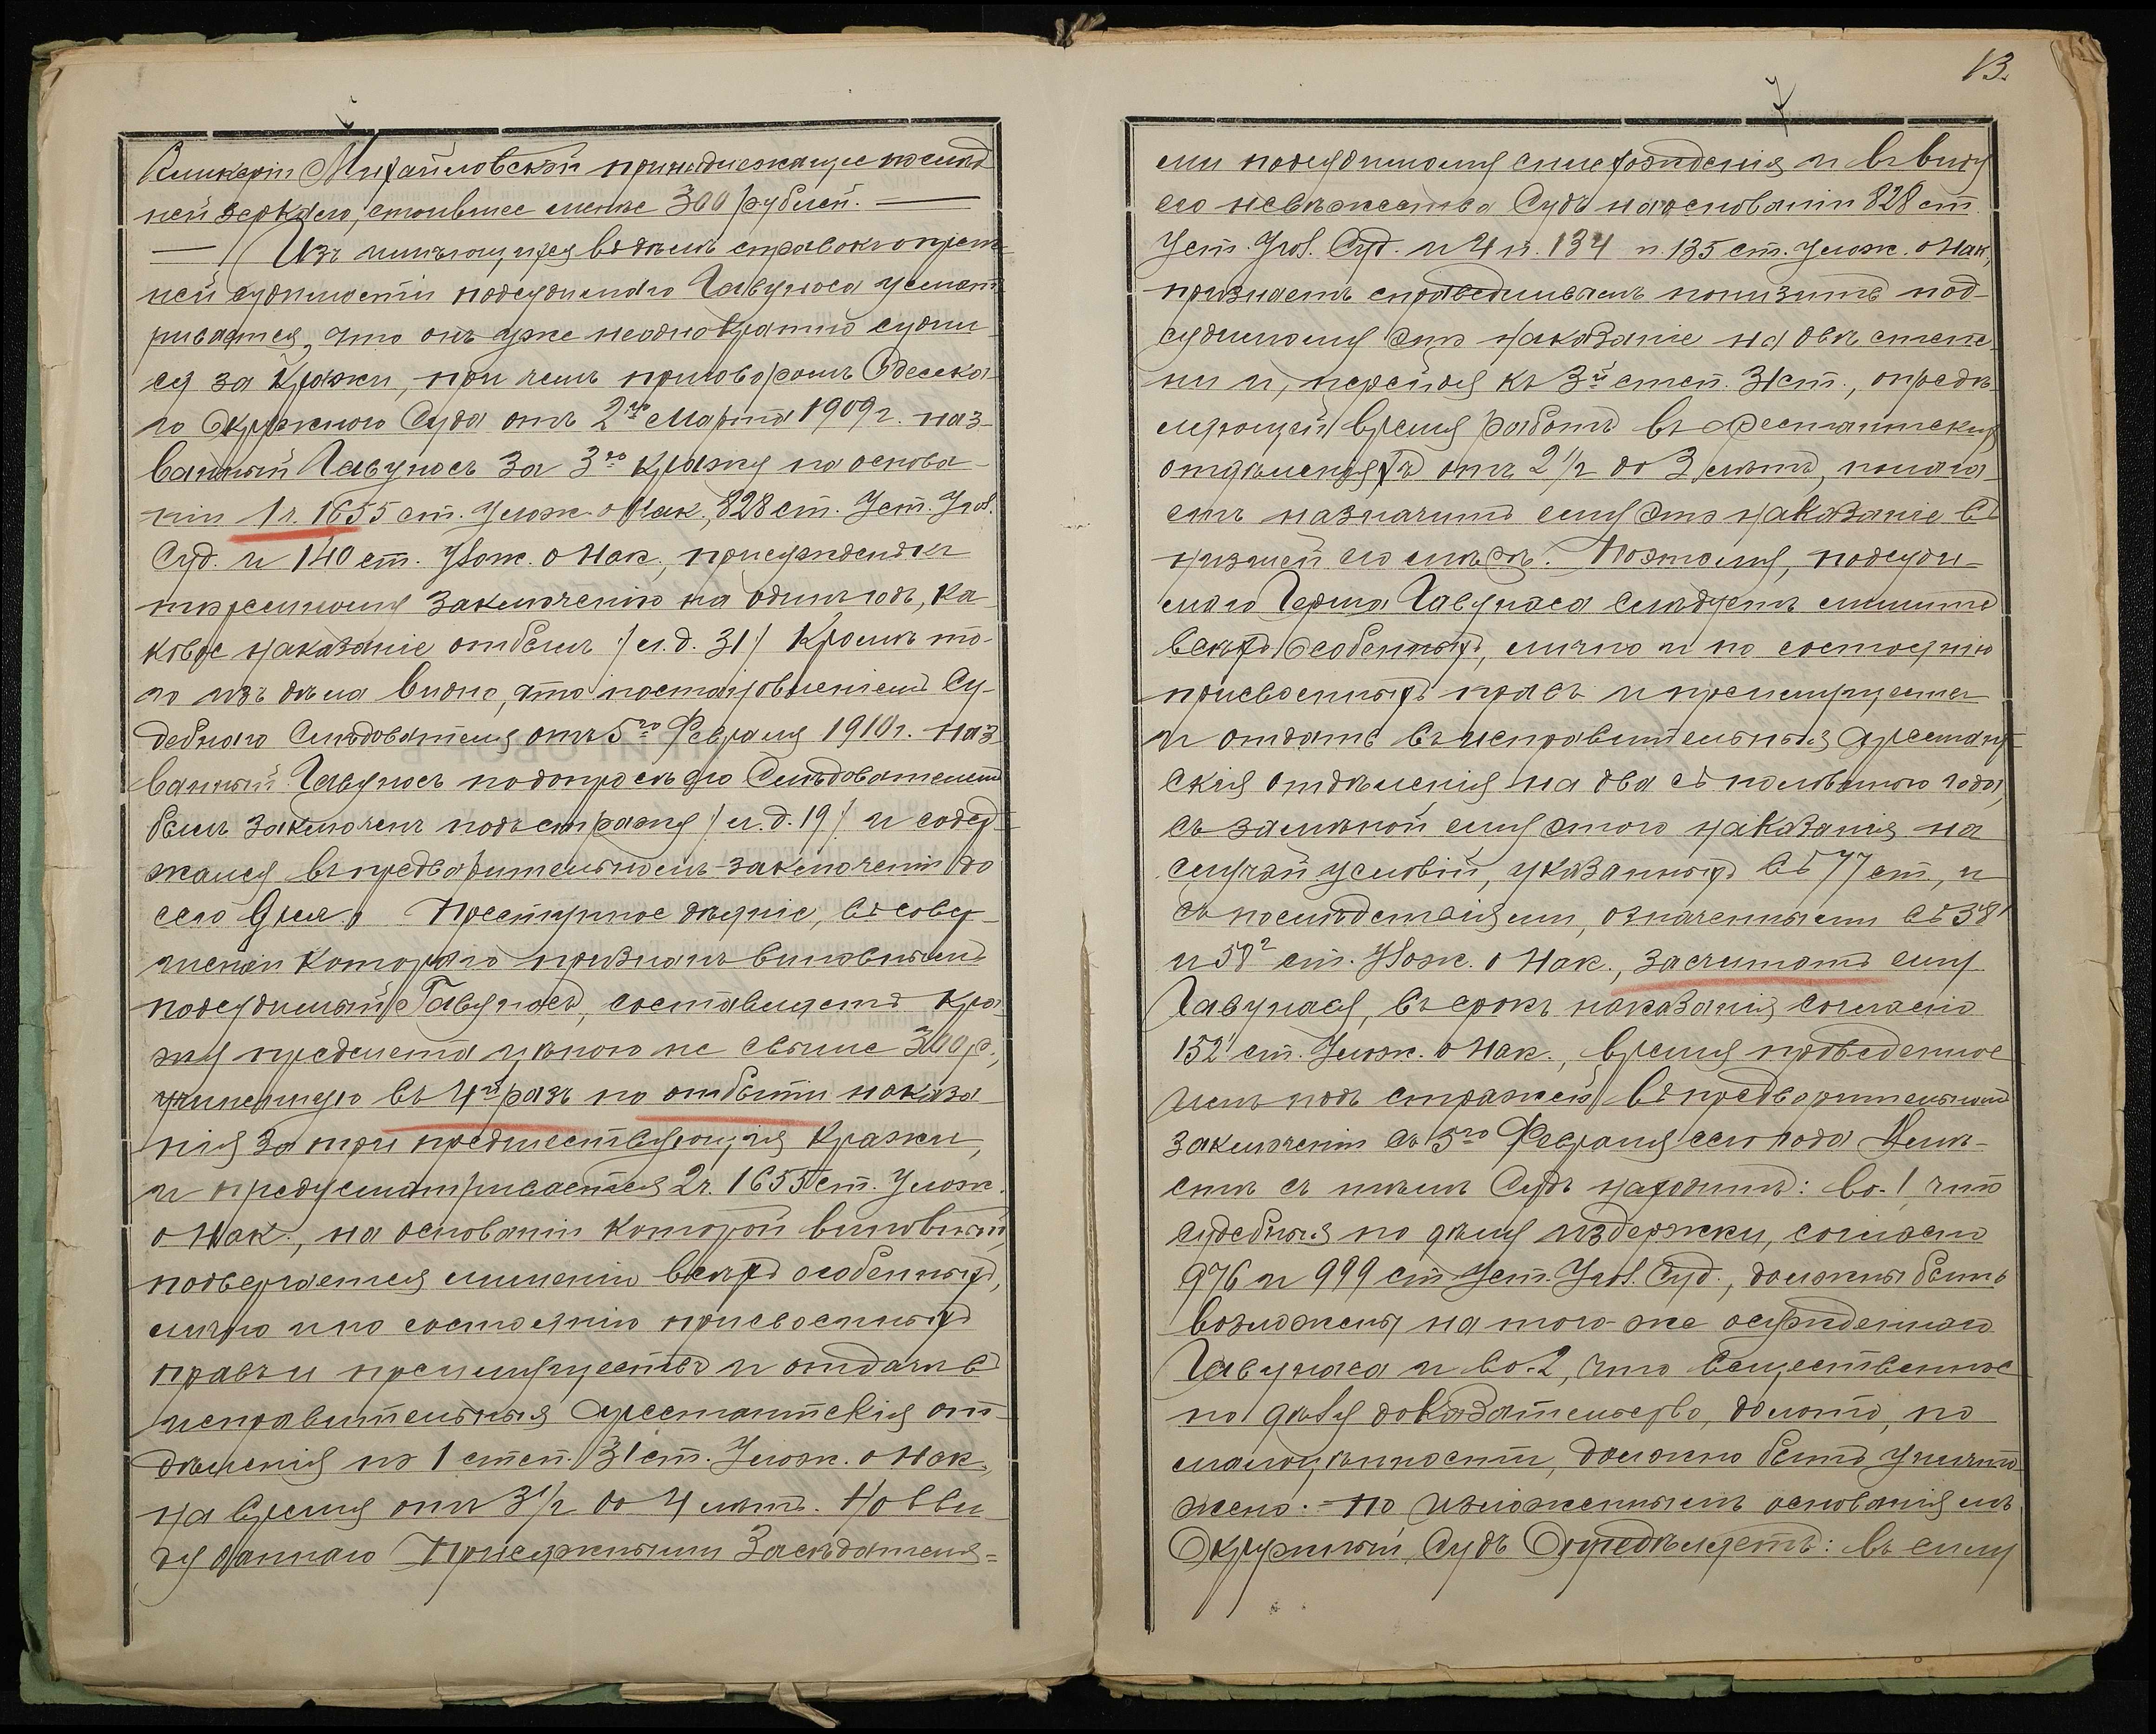 Гликеріи Михайловской принадлежащее послѣд
ней зеркало, стоившее менѣе 300 рублей. —
— Изъ имѣющихся въ дѣлѣ справокъ о преж
ней судимости подсудимаго Гавунаса усмат
ривается, что онъ уже неоднократно судил
ся за кражи, при чемъ приговоромъ Одесска
го Окружного Суда отъ 2го Марта 1909 г. наз
ванный Гавунасъ за 3ю кражу на основа
ніи 1 ч. 1655 ст. Улож. о Нак., 828 ст. Уст. Угол.
Суд. и 140 ст. Улож. о Нак., присужденъ къ
тюремному заключенію на одинъ годъ, ка
ковое наказаніе отбылъ /л. д. 31/ Кромѣ то-
го изъ дѣла видно, что постановленіемъ Су-
дебнаго Слѣдователя отъ 5го Февраля 1910 г. наз
ванный Гавунасъ по допросѣ его Слѣдователемъ
былъ заключенъ подъ стражу /л. д. 19/ и содер
жался въ предварительномъ заключеніи до
сего дня. Преступное дѣяніе, въ совер-
шеніи котораго признанъ виновнымъ
подсудимый Гавунасъ, составляетъ кра
жу предмета цѣною не свыше 300 р.,
учиненную въ 4й разъ по отбытіи наказа
нія за три предшествующія кражи,
и предусматривается 2 ч. 1655 ст. Улож.
о Нак., на основаніи которой виновный,
подвергается лишенію всѣхъ особенныхъ,
лично и по состоянію присвоенныхъ
правъ и преимуществъ и отдачи въ
исправительныя арестантскія от-
дѣленія по 1 степ. 31 ст. Улож. о Нак.
на время отъ 3½ до 4 лѣтъ. Но въ ви
ду даннаго Присяжными Засѣдателя=
13.
7
ми подсудимому снисхожденія и въ виду
его невѣжества Судъ на основаніи 828 ст.
Уст. Угол. Суд. и 4 п. 134 и 135 ст. Улож. о Нак.,
признаетъ справедливымъ понизить под-
судимому это наказаніе на двѣ степе-
ни и, перейдя къ 3й степ. 31 ст., опредѣ-
ляющей время работъ въ арестантскихъ
отдѣленіяхъ отъ 2½ до 3 лѣтъ, полага-
етъ назначить ему это наказаніе въ
низшей его мѣрѣ. Поэтому, подсуди-
маго Герша Гавунаса слѣдуетъ лишить
всѣхъ особенныхъ, лично и по состоянію
присвоенныхъ правъ и преимуществъ
и отдать въ исправительныя арестант
скія отдѣленія на два съ половиною года,
съ замѣной ему этого наказанія на
случай условій, указанныхъ въ 77 ст., и
съ послѣдствіями, означенными въ 58¹
и 58² ст. Улож. о Нак., засчитать ему
Гавунасу, въ срокъ наказанія согласно
152¹ ст. Улож. о Нак., время проведенное
имъ подъ стражей въ предварительномъ
заключеніи съ 5го Февраля сего года Вмѣ-
стѣ съ тѣмъ Судъ находитъ: во-1, что
судебныя по дѣлу издержки, согласно
976 и 999 ст Уст. Угол. Суд., должны быть
возложены на того-же осужденнаго
Гавунаса и во-2, что вещественное
по дѣлу доказательство, долото, по
малоцѣнности, должно быть уничто
жено. = По изложеннымъ основаніямъ
Окружный Судъ Опредѣляетъ: въ силу